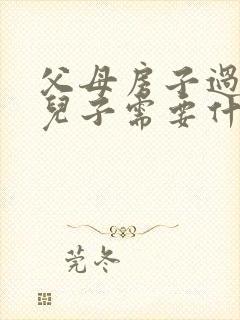 父母房子過
兒子需要什
莞冬